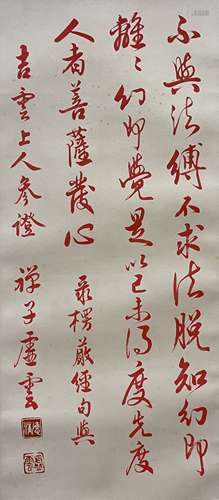 不與法縛不求法脫知幻即
離離幻即覺是以已未得度先度
人者菩薩發心
录楞嚴經句與
吉雲上人參證
禅子虛雲